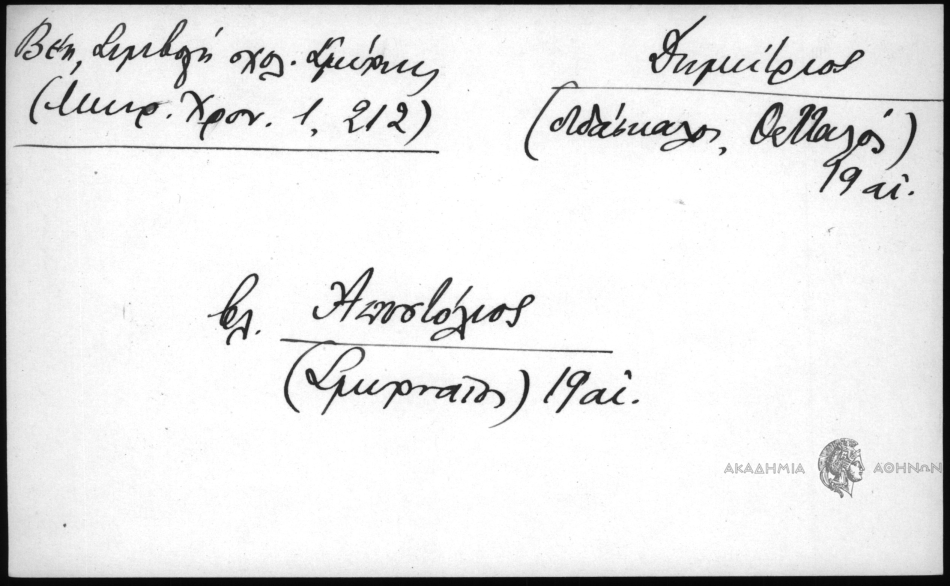 Βέη, Συμβολή σχολ. Σμύρνης
(Μικρ. Χρον. 1, 212)
Δημήτριος
(διδάσκαλος, Θετταλός)
19 αἰ.
βλ. Ἀποστόλιος
(Σμυρναῖος) 19 αἰ.
ΑΚΑΔΗΜΙΑ ΑΘΗΝΩΝ